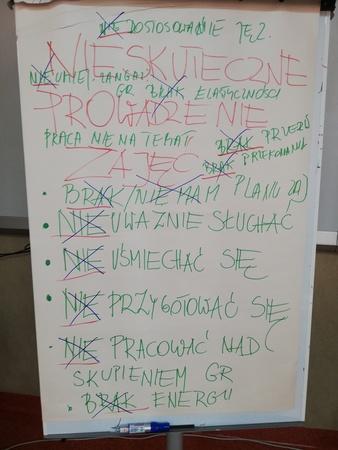 NIE DOSTOSOWANIE JĘZ.
NIESKUTECZNE
NIE UMIEJ. ZAANGAŻ. GR BRAK ELASTYCZNOŚCI
PROWADZENIE
PRACA NIE NA TEMAT BRAK PRZERW
ZAJĘĆ BRAK PRZEKONANIA
• BRAK/NIE MAM PLANU ZAJ
• NIE UWAŻNIE SŁUCHAĆ
• NIE UŚMIECHAĆ SIĘ
• NIE PRZYGOTOWAĆ SIĘ
• NIE PRACOWAĆ NAD
SKUPIENIEM GR
• BRAK ENERGII